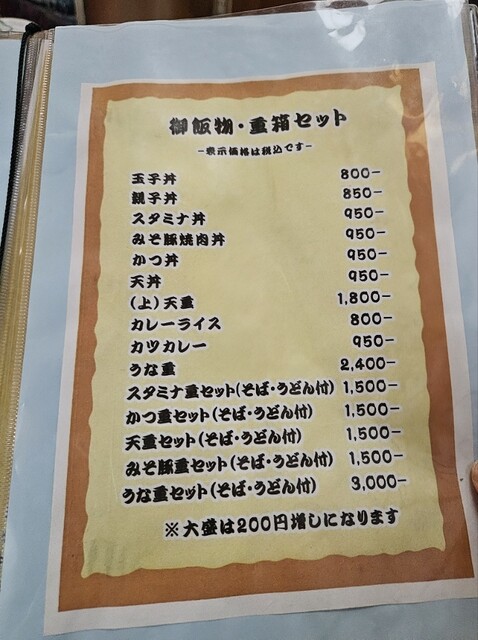 御飯物・重箱セット
-表示価格は税込です-
玉子丼 800-
親子丼 850-
スタミナ丼 950-
みそ豚焼肉丼 950-
かつ丼 950-
天丼 950-
(上)天重 1,800-
カレーライス 800-
カツカレー 950-
うな重 2,400-
スタミナ重セット(そば・うどん付) 1,500-
かつ重セット(そば・うどん付) 1,500-
天重セット(そば・うどん付) 1,500-
みそ豚重セット(そば・うどん付) 1,500-
うな重セット(そば・うどん付) 3,000-
※大盛は200円増しになります